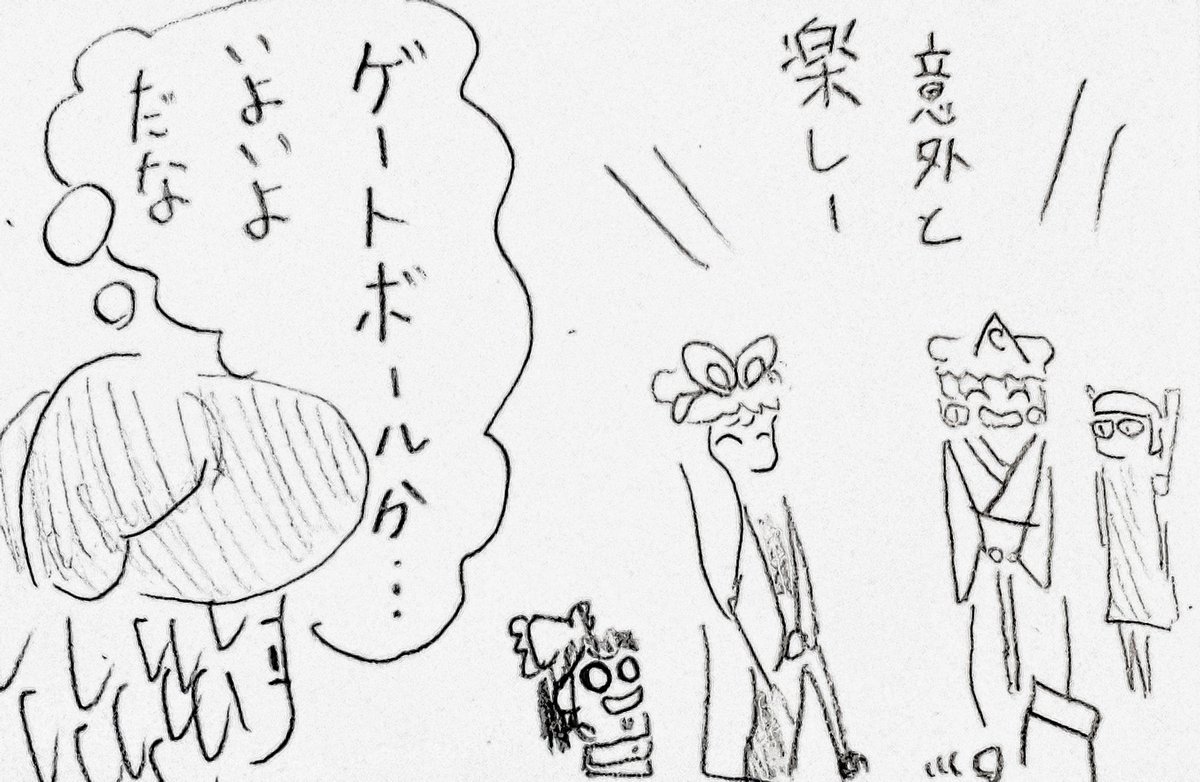 意外と
楽しー
ゲートボールか…
いよいよ
だな